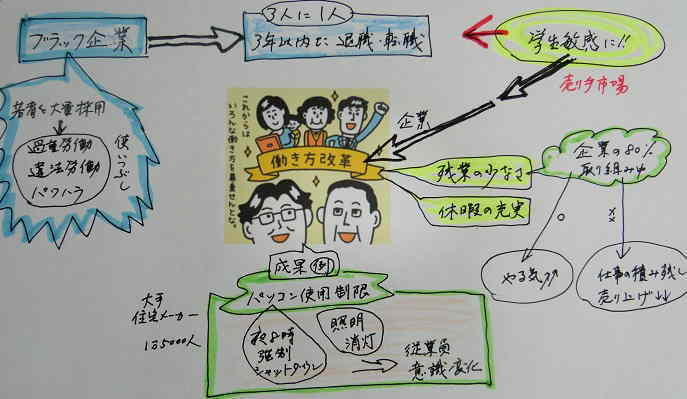 ブラック企業
3人に1人
3年以内で退職・転職
学生敏感に!!
売り手市場
若者を大量採用
過重労働
違法労働
パワハラ
使いつぶし
これからは
いろんな働き方を募集せんとな。
働き方改革
企業
残業の少なさ
休暇の充実
企業の80%
取り組み中
やる気↗
仕事の積み残し
売り上げ↓↓
成果 例
パソコン使用制限
大手
住宅メーカー
1万5000人
夜8時
強制
シャットダウン
照明
消灯
従業員
意識変化